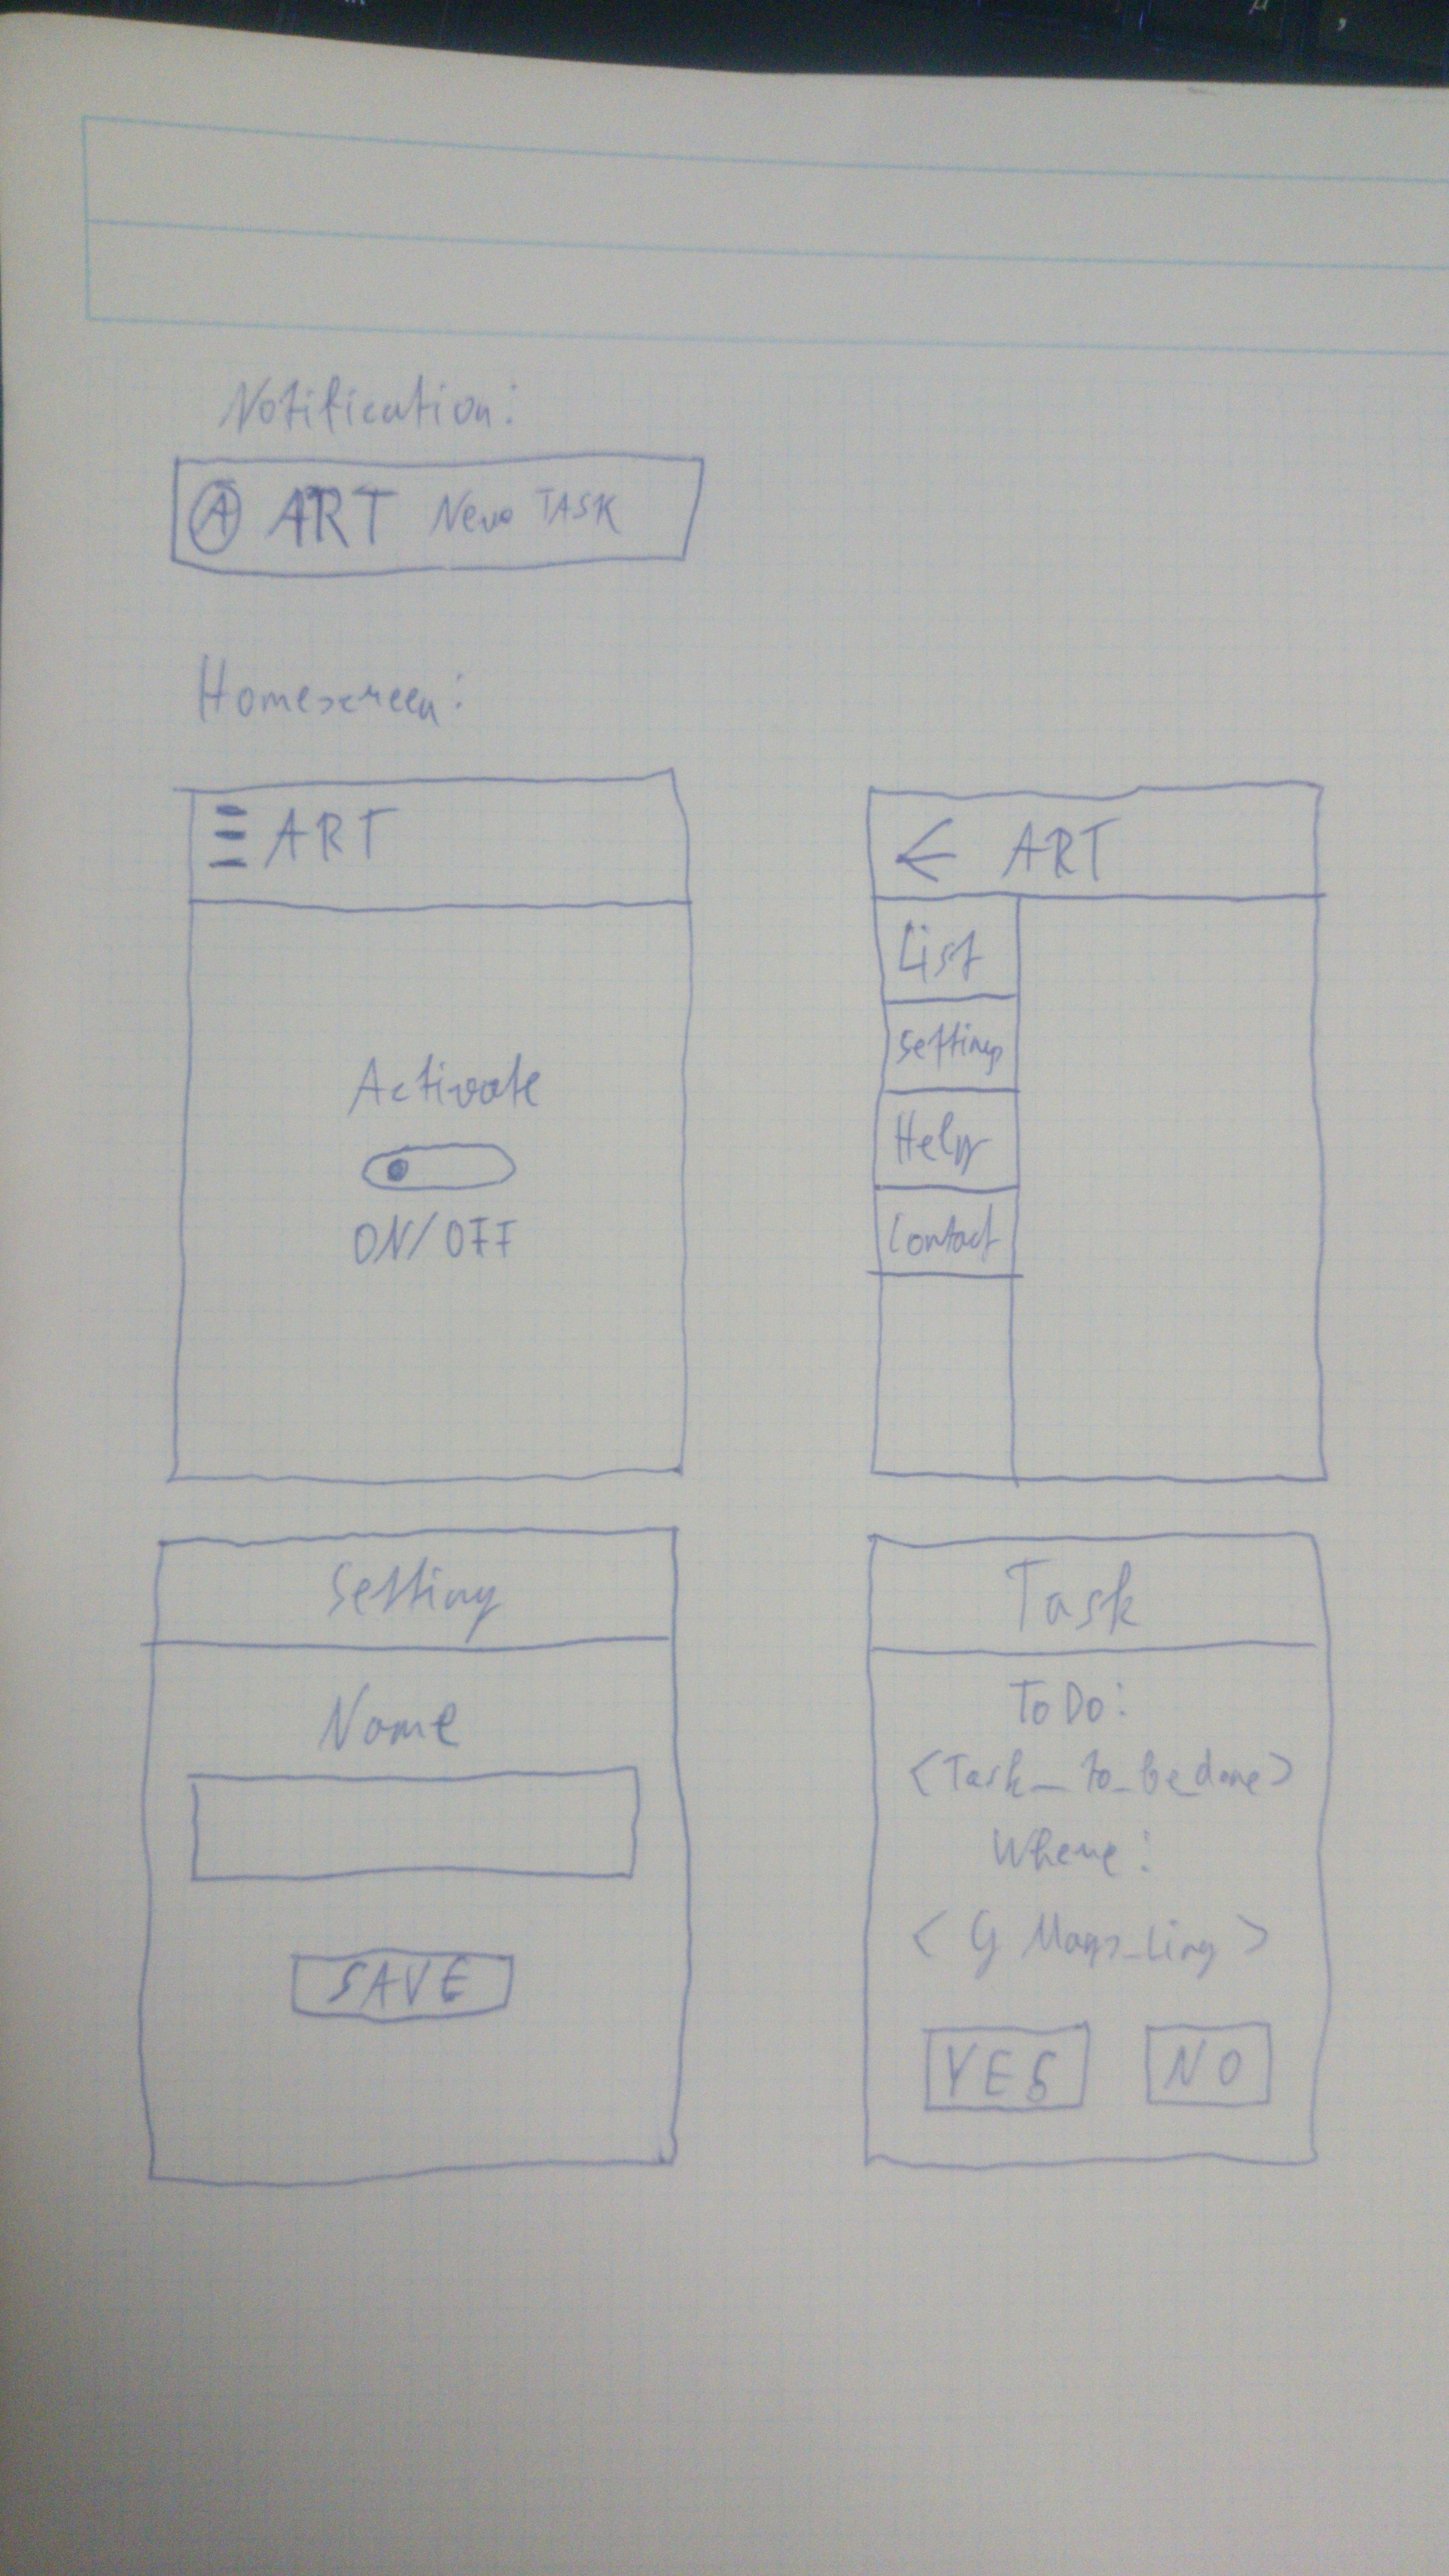 Notification:
A ART New TASK
Homescreen:
ART
Activate
ON/OFF
← ART
List
Settings
Help
Contact
Setting
Name
SAVE
Task
ToDo:
<Task_to_be_done>
Where:
<G Maps_Ling>
YES NO